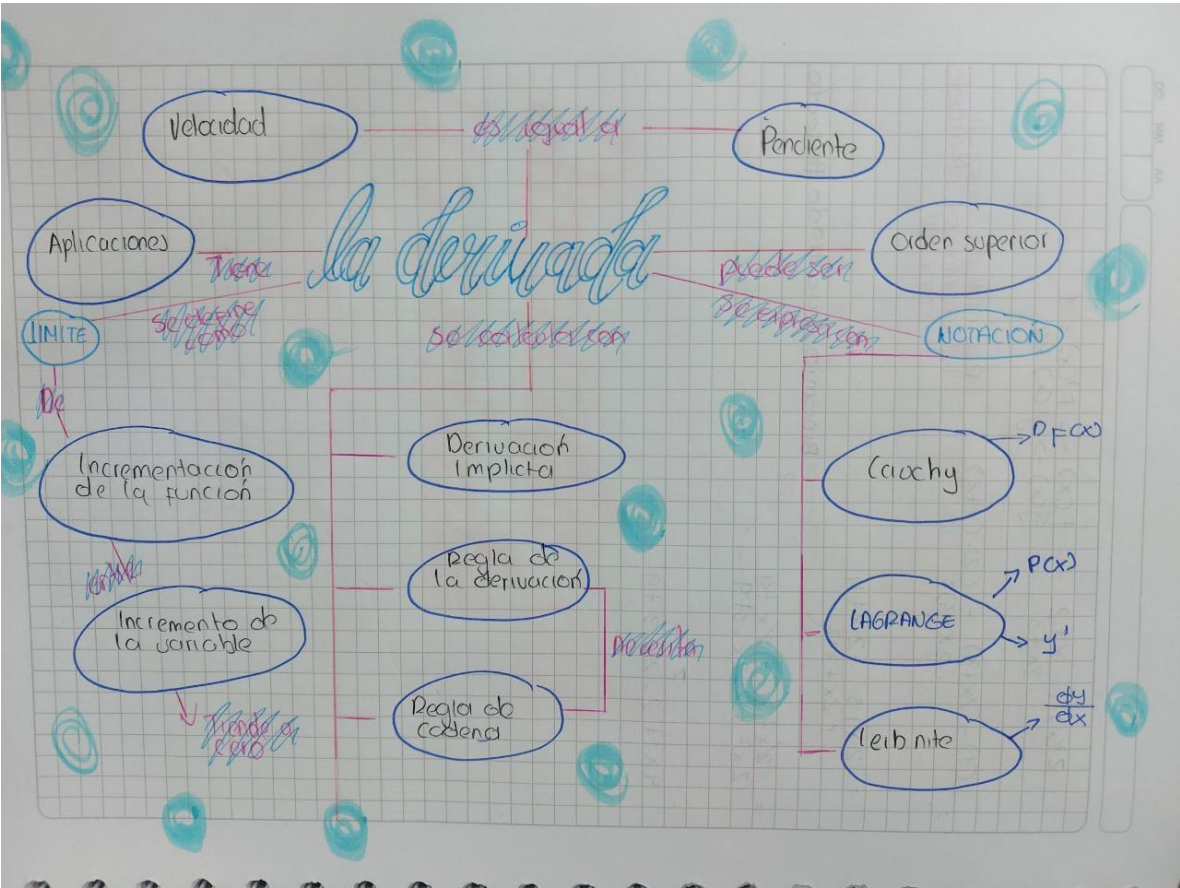 Velocidad
es igual a
Pendiente
Aplicaciones
Tiene
la derivada
puede ser
Orden superior
LIMITE
se expresa con
NOTACIÓN
De
Incrementación
de la función
Incremento de
la variable
Tiende a
cero
Derivación
Implicta
Regla de
la derivación
necesiten
Regla de
cadena
Cauchy
DF(x)
LAGRANGE
P(x)
y'
leibnite
dy
dx